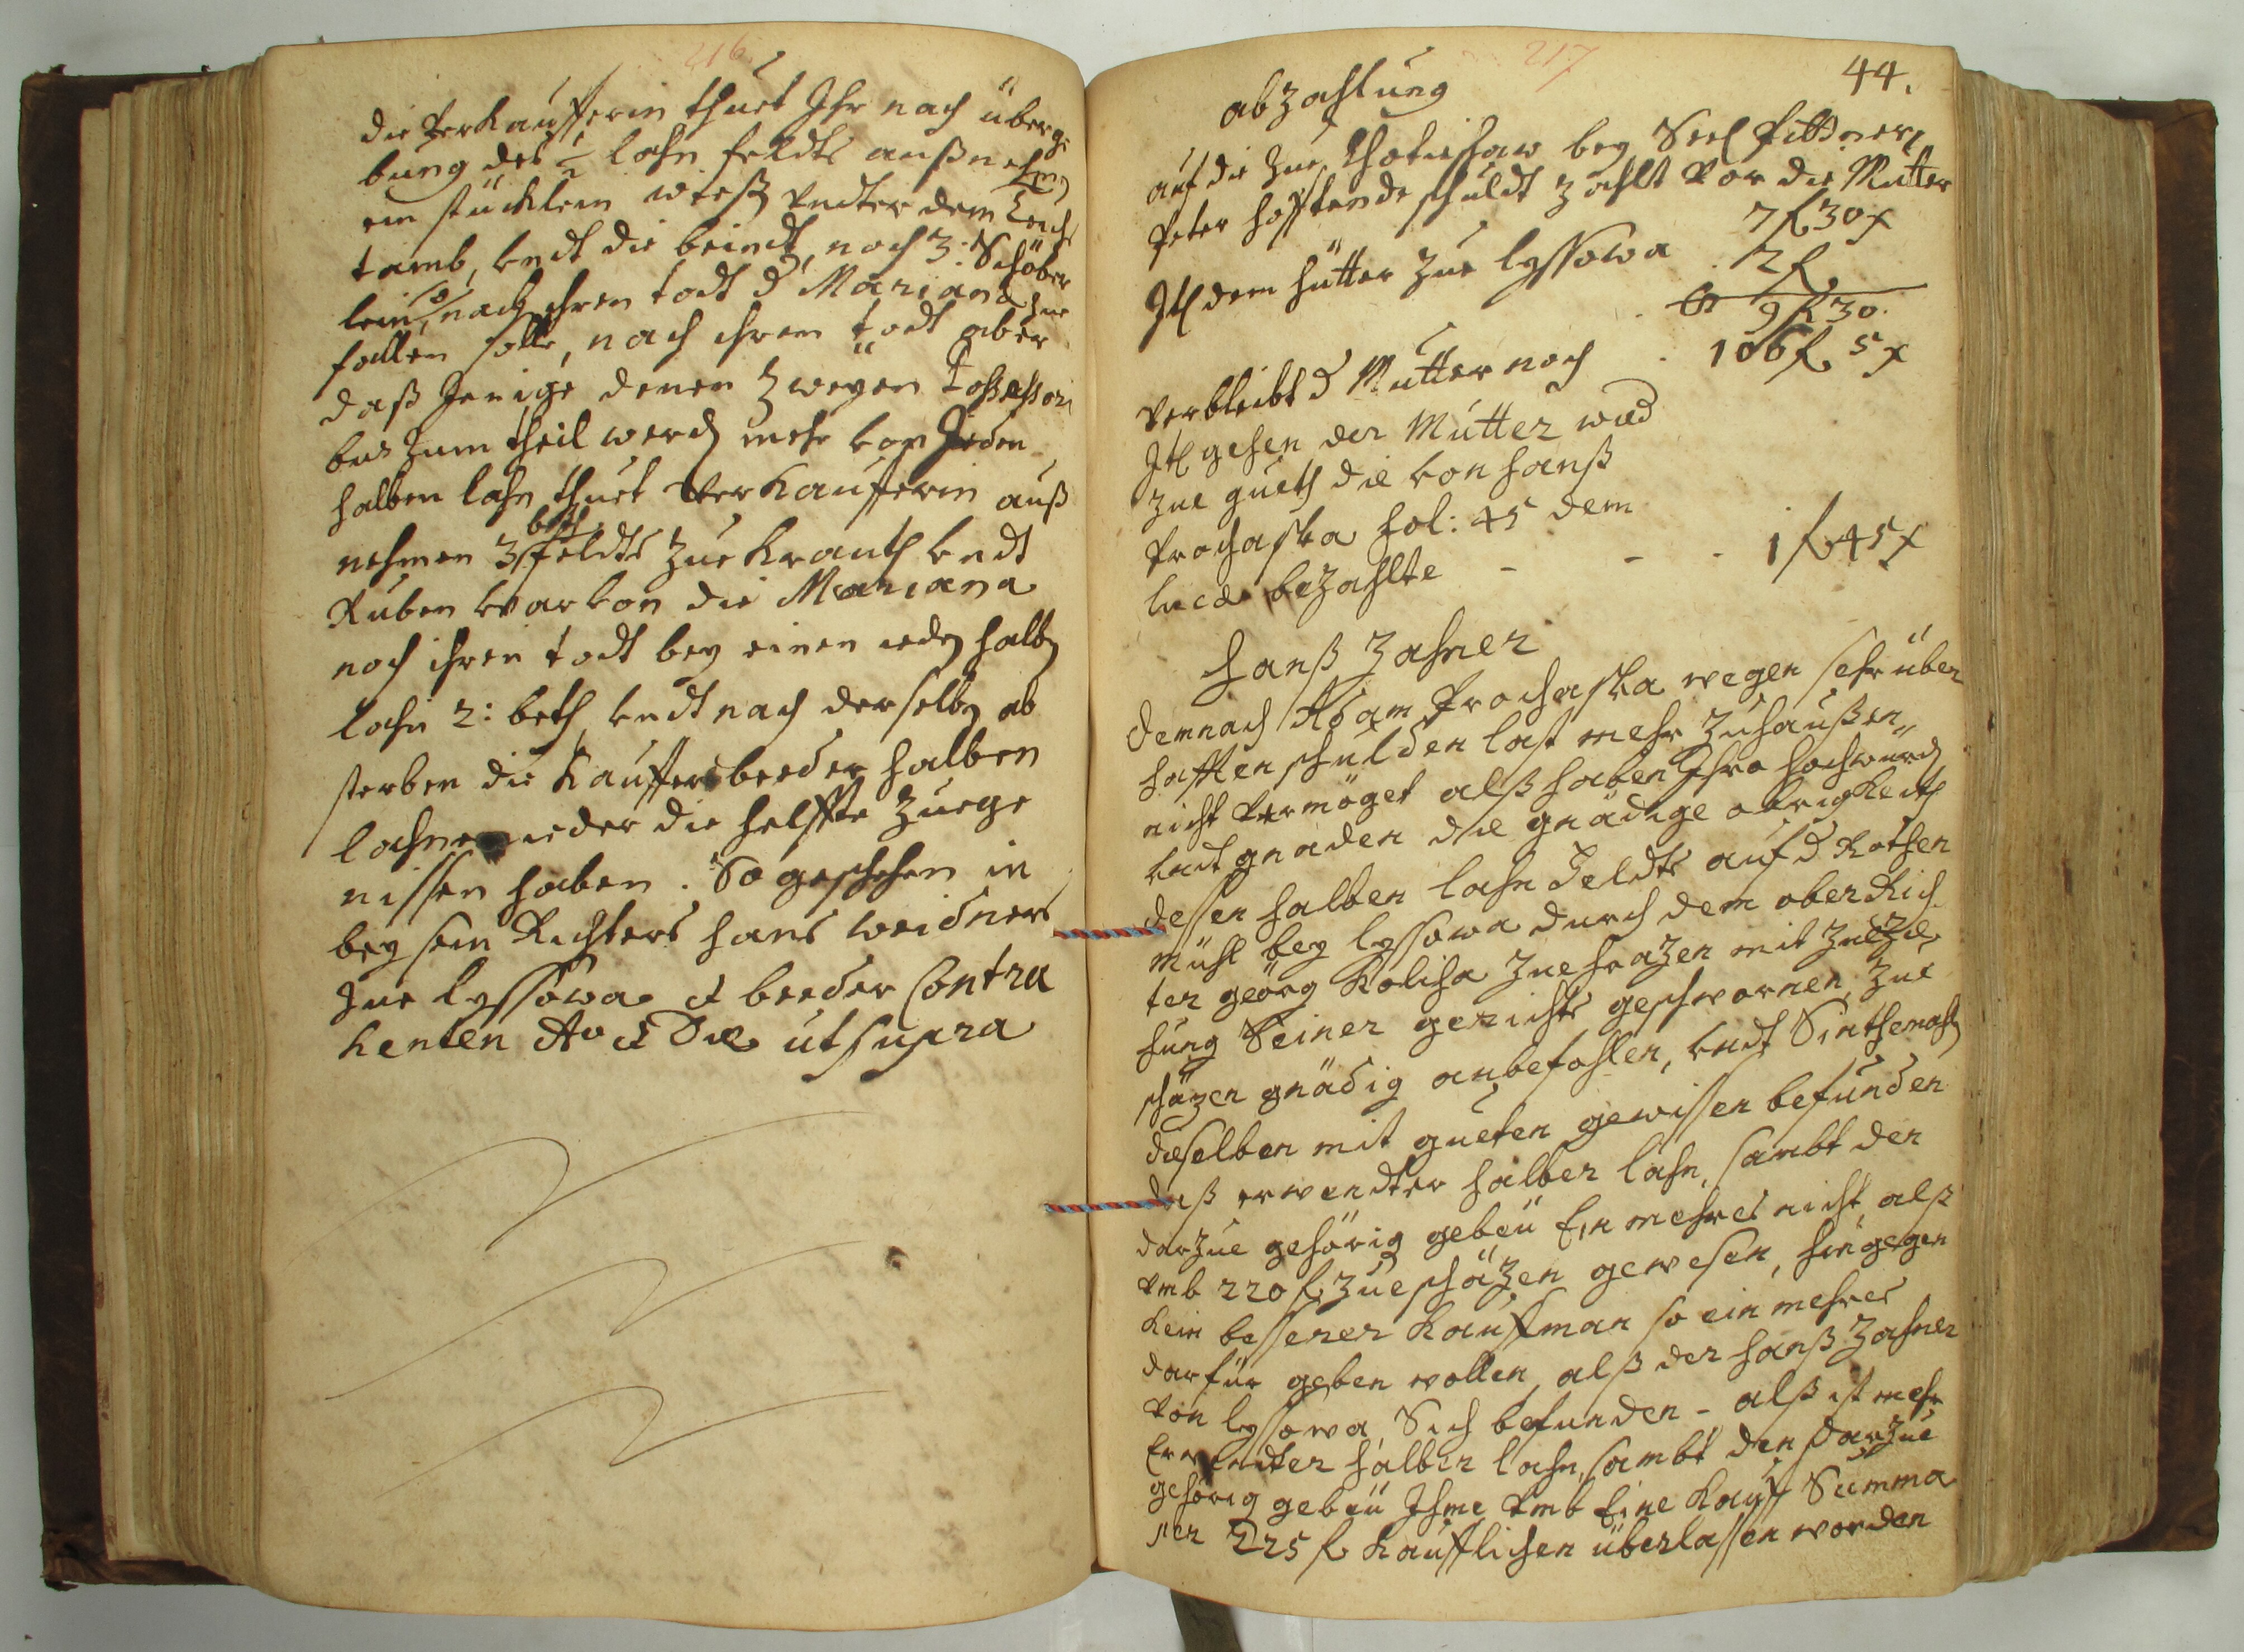 216.
die Verkaufferin thuet Ihr nach überge
bung des ½ lahn feldts außnehmen
ein stücklein wieß undter dem Teich
tamb, undt die beindt, noch 3: Schöber
lein, nach ihren todt d Mariana zue
fallen solle, nach ihren todt aber
daß Jenige denen zweyen Possessori
bus zum theil werdt mehr von Jeden
halben lahn thuet Verkaufferin auß
nehmen 3 beth feldts zue Krauth undt
Ruben warvon die Mariana
noch ihren todt bey einen iedn halbn
lahn 2: beth undt nach derselbn ab
sterben die Kauffer beeder halben
lahne ieder die helffte Zuege
nissen haben. So geschehen in
beysein Richters hans Weidners
Zue lyssowa et beeder Contra
henten Ao et Die ut supra
217
44.
abzahlung
auf die Zue Chotieschaw bey Seel Pittners
Peter hafftende schuldt zahlt vor die Mutter
7 f 30 x
Itl dem hütter Zue lyssowa 2 f
9 f 30.
Verbleibt d Mutter noch 106 f 5 x
Itl gehen der Mutter wid
zue gueth die von hanß
Prochaska fol: 45 dem
luca bezahlte - - - 1 f 45 x
Hanß Zahner
Demnach Adam Prochaska wegen sehr über
hafften schulden last mehr Zuhaußen
nicht vermöget alß haben Ihro hochwürd
undt gnaden die gnädige obrigkeith
dessen halben lahn Feldts auf d Rothen
Mühl bey lyssowa durch dem ober Rich
ter geörg Kolicha Zue hrazen mit Zuezie
hung Seiner gerichts geschwornen, Zue
schäzen gnädig anbefohlen, undt Sinthemahl
dieselben mit gueten gewissen befunden
daß erwendter halber lahn, sambt der
darzue gehörig gebeü Ein mehres nicht, alß
umb 220 f Zue schäzen gewesen, hingegen
kein besserer Kauffman so ein mehres
darfür geben wollen, alß der hanß Zahner
von lyssowa, Sich befunden - alß ist mehr
Erwendter halber lahn, sambt den darzue
gehörig gebeü Ihme umb Eine Kauff Summa
per 225 f Kaufflichen überlassen worden